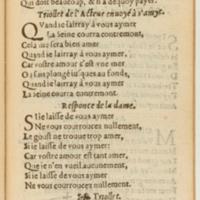 Qui doit beaucoup, & n'a dequoy payer.
Triollet de l'Acteur enuoyé à s'amye.
Quand ie lairray à vous aymer
La Seine courra contremont,
Cela me sera bien amer
Quand ie lairray à vous aymer,
Car vostre amour s'est vne mer
Où suis plongé iusques au fonds,
Quand ie lairray à vous aymer
La Seine courra contremont.
Responce de la dame.
Si ie laisse de vous aymer
Ne vous courroucez nullement,
Le goust ne trouue trop amer,
Si ie laisse de vous aymer:
Car vostre amour est tant amer,
Que ie n'en vueil aucunement,
Si ie laisse de vous aymer
Ne vous courroucez nullement.
Triollet.